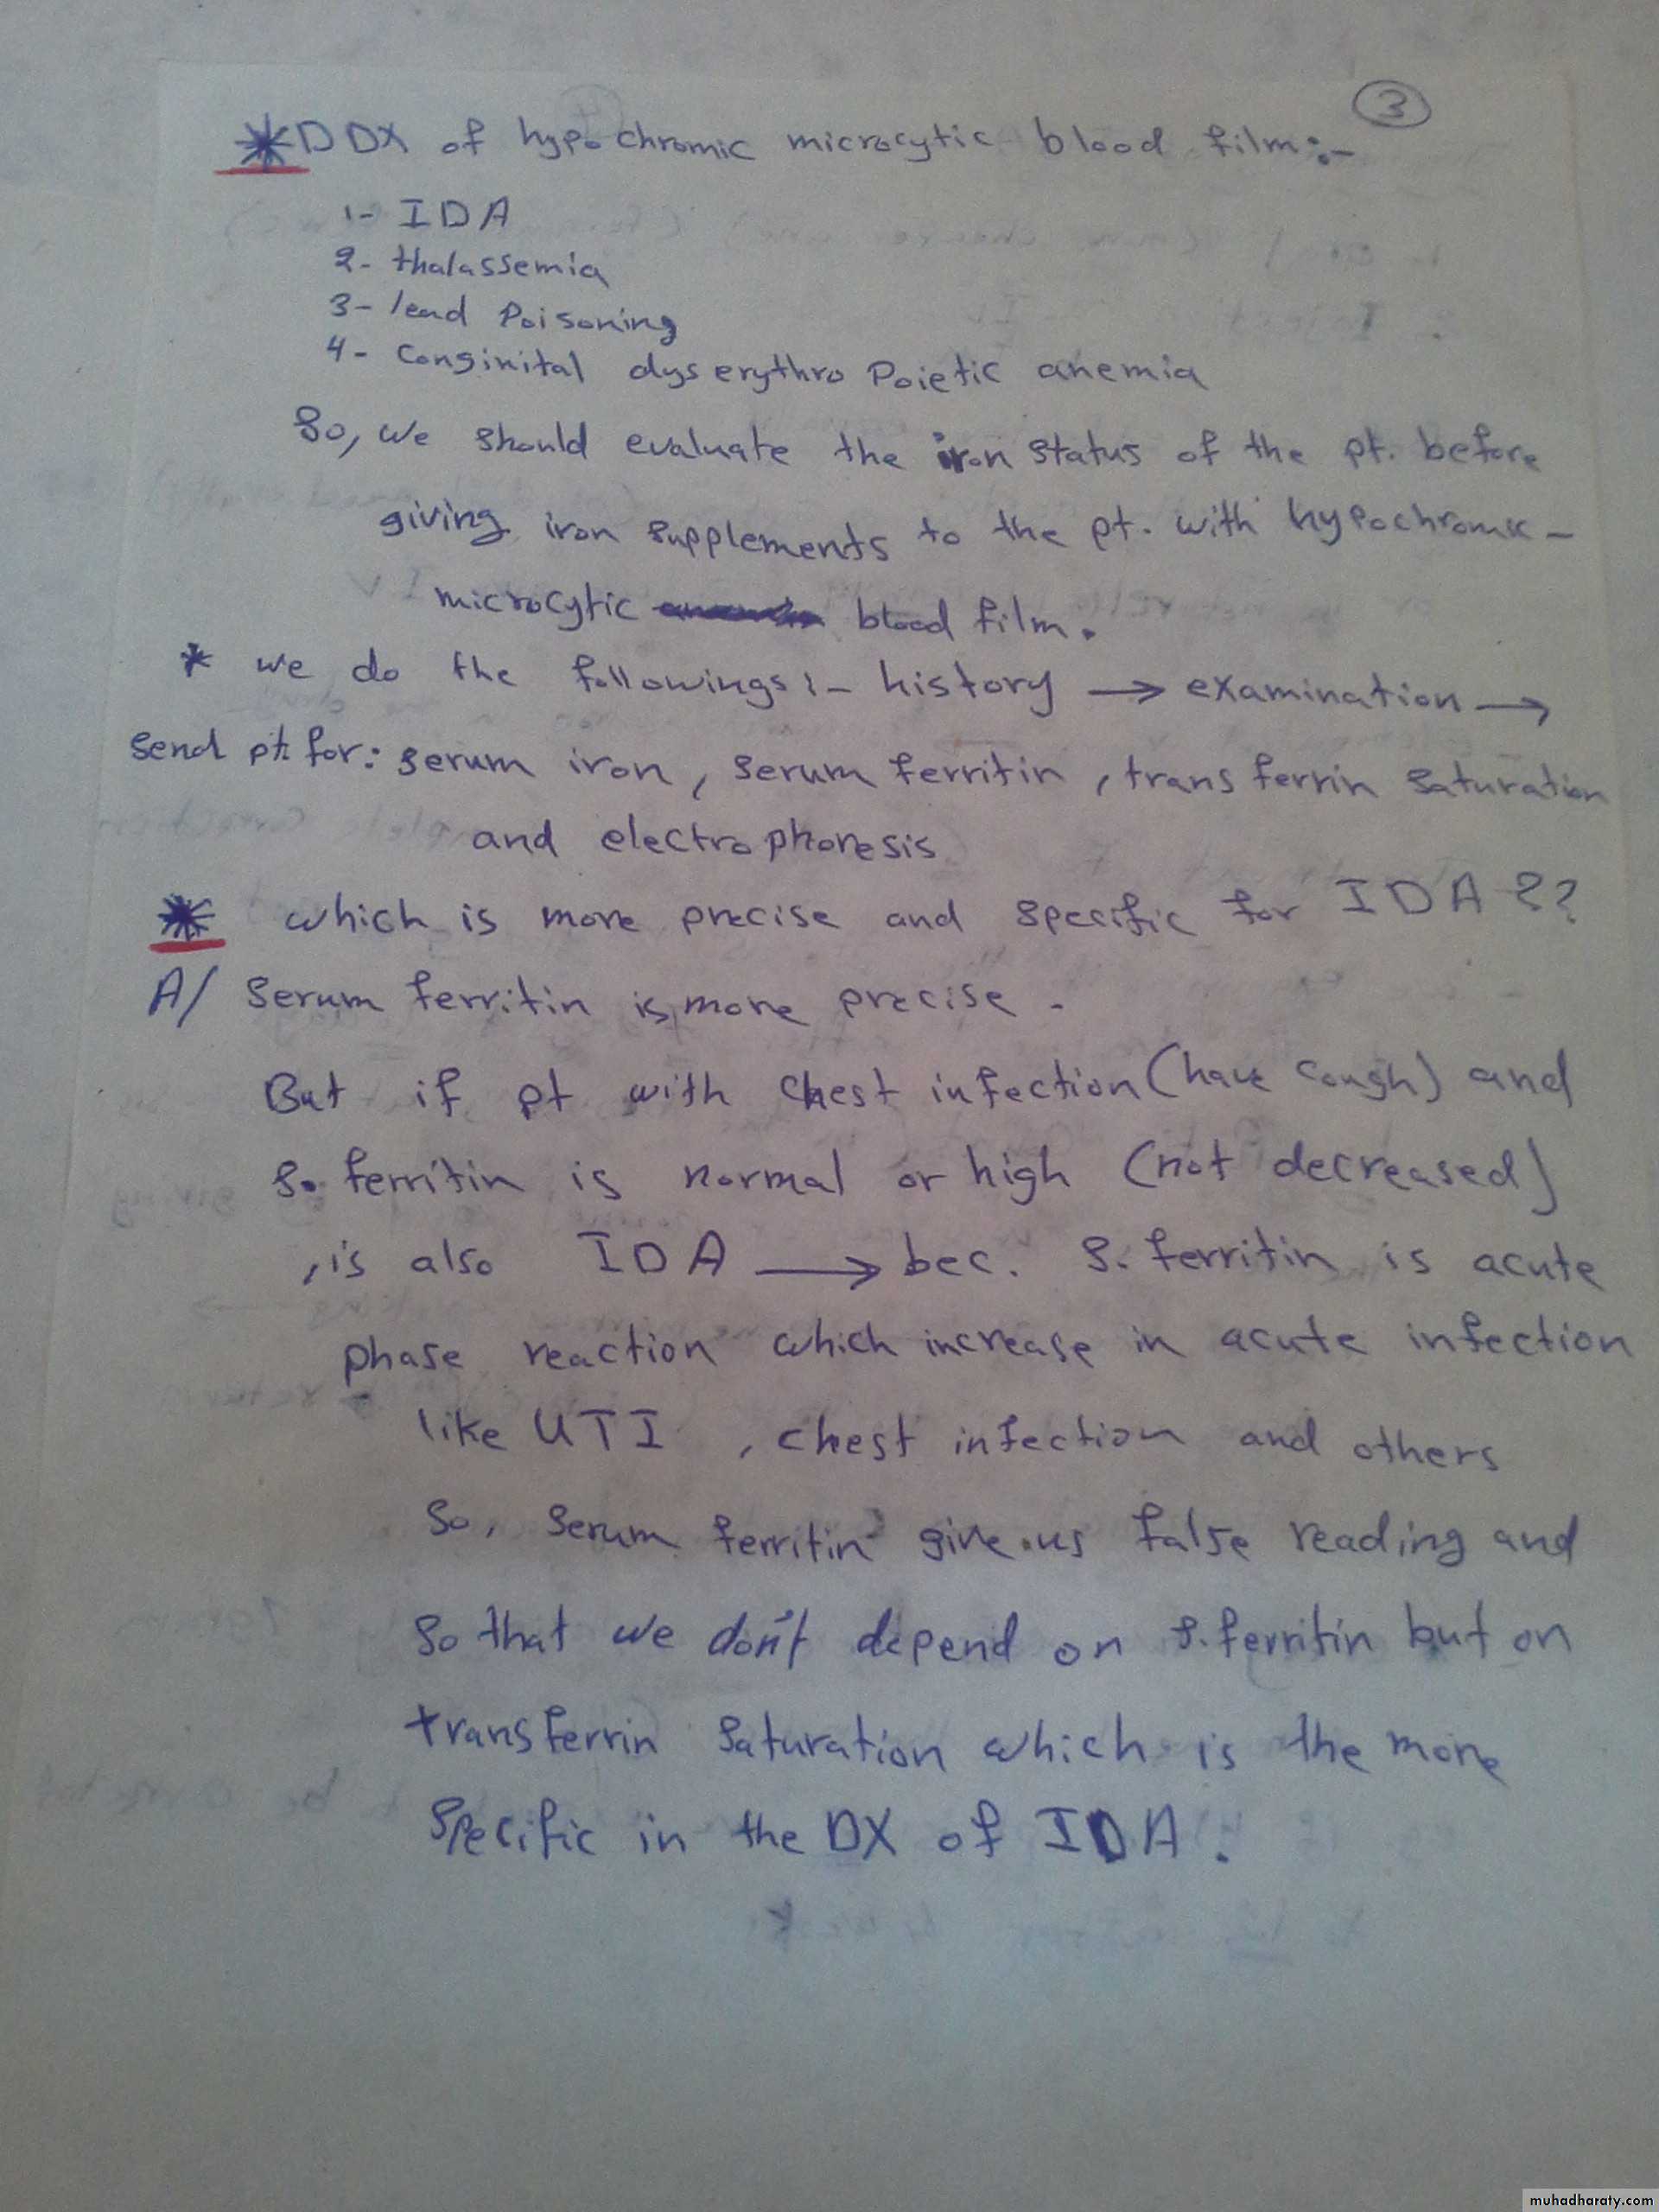 3
* D DX of hypochromic microcytic blood film:-
1- IDA
2- thalassemia
3- lead Poisoning
4- Conginital dyserythro Poietic anemia
So, we should evaluate the iron status of the pt. before
giving iron supplements to the pt. with hypochromic -
microcytic blood film.
* we do the followings:- history → examination →
send pt. for: serum iron, serum ferritin, transferrin saturation
and electrophoresis
* which is more precise and specific for IDA ??
A/ serum ferritin is more precise.
But if pt with chest infection (have cough) and
s. ferritin is normal or high (not decreased)
, is also IDA → bec. s. ferritin is acute
phase reaction which increase in acute infection
like UTI , chest infection and others
So, serum ferritin give us false reading and
so that we don't depend on s. ferritin but on
transferrin saturation which is the more
specific in the DX of IDA.
muhadharaty.com